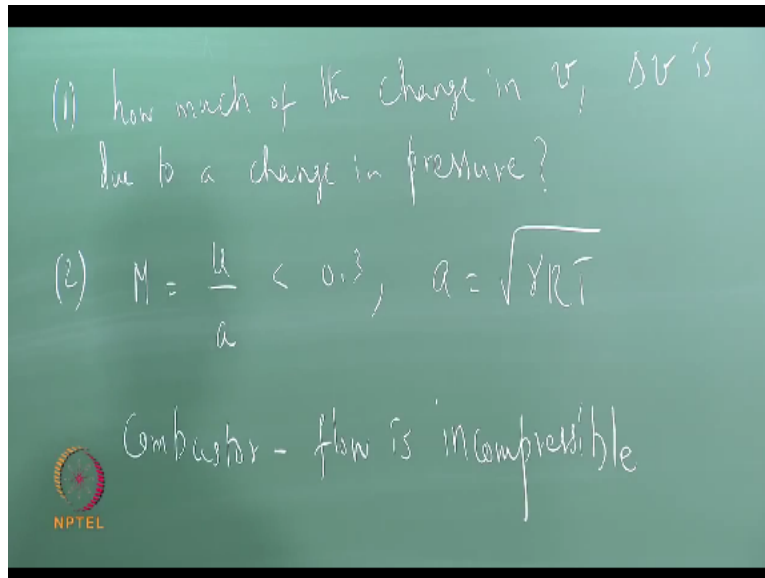 (1) how much of the change in v, Δv is
due to a change in pressure?
(2) M = u/a < 0.3, a = √γRT
Combustor - flow is incompressible
NPTEL